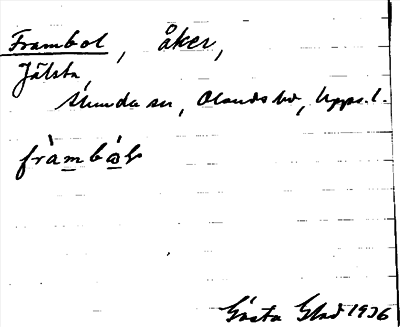 Frambol, åker,
Jälsta,
Stunda sn, Olands hd, Upps. l.
Gösta Glad 1936